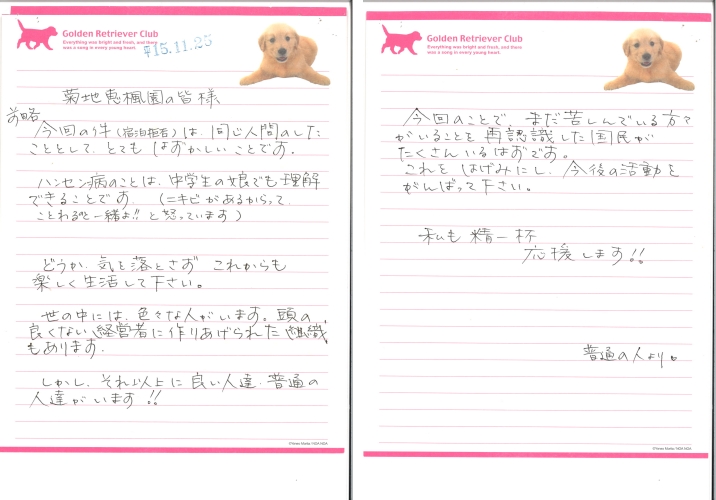 Golden Retriever Club
Everything was bright and fresh, and there
was a song in every young heart.
15.11.25
菊地恵楓園の皆様
前略
今回の件(宿泊拒否)は、同じ人間のした
こととして、とても はずかしい ことです。
ハンセン病のことは、中学生の娘でも理解
できることです。(ニキビがあるからって、
ことわるのと一緒よ!! と怒っています)
どうか、気を落とさず これからも
楽しく生活して下さい。
世の中には、色々な人がいます。頭の
良くない経営者に作りあげられた組織
もあります。
しかし、それ以上に良い人達、普通の
人達がいます!!
Golden Retriever Club
Everything was bright and fresh, and there
was a song in every young heart.
今回のことで、まだ苦しんでいる方々
がいることを再認識した国民が
たくさんいるはずです。
これを はげみにし、今後の活動を
がんばって下さい。
私も精一杯
応援します!!
普通の人より。